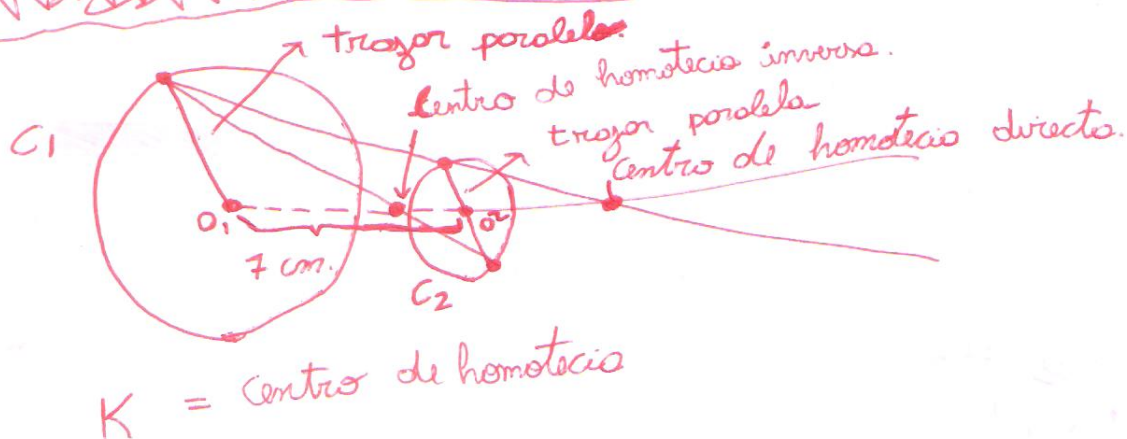 trazar paralela.
Centro de homotecia inversa.
trazar paralela
Centro de homotecia directa.
C1
O1
O2
7 cm.
C2
K = Centro de homotecia